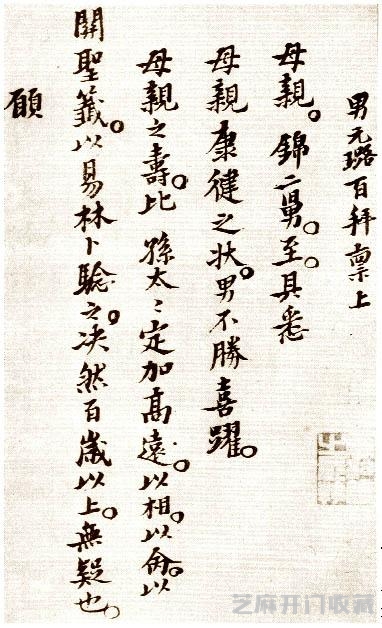 男元璐百拜稟上
母親。錦二舅。至。具悉
母親康健之狀。男不勝喜躍。
母親之壽。比孫太〻定加高遠。以相。以命。以
關聖籤。以易林卜驗之。决然百歲以上。無疑也。
願
芝麻开门收藏